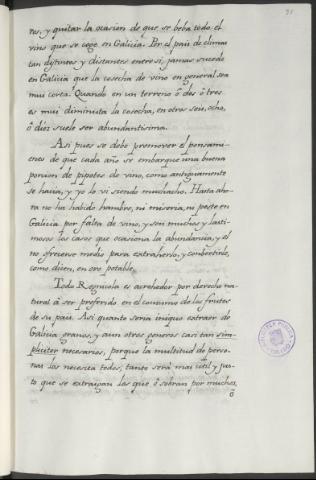 res, y quitar la ocasion de que se beba todo el
vino que se coge en Galicia. Por el pais de climas
tan distintos y distantes entre si, jamas sucede
en Galicia que la cosecha de vino en general, sea
mui corta. Quando en un terreno ò dos ò tres
es mui diminuta la cosecha, en otros seis, ocho,
ò diez suele ser abundantisima.
Asi pues se debe promover el pensami-
ento de que cada año se embarque una buena
porcion de pipotes de vino, como antiguamente
se hacia, y yo lo vi siendo muchacho. Hasta aho-
ra no ha habido hambre, ni miseria, ni peste en
Galicia por falta de vino, y son muchos y lasti-
mosos los casos que ocasiona la abundancia, y el
no ofrecerse medio para extraherlo, y convertirlo,
como dicen, en oro potable.
Todo Regnicola es acrehedor por derecho na-
tural à ser preferido en el consumo de los frutos
de su pais. Asi quanto seria iniquo extraer de
Galicia granos, y aun otros generos casi tan sim-
pliciter necesarios, porque la multitud de perso-
nas los necesita todos, tanto será mas util y jus-
to que se extraigan los que ò sobran por muchos,
ò